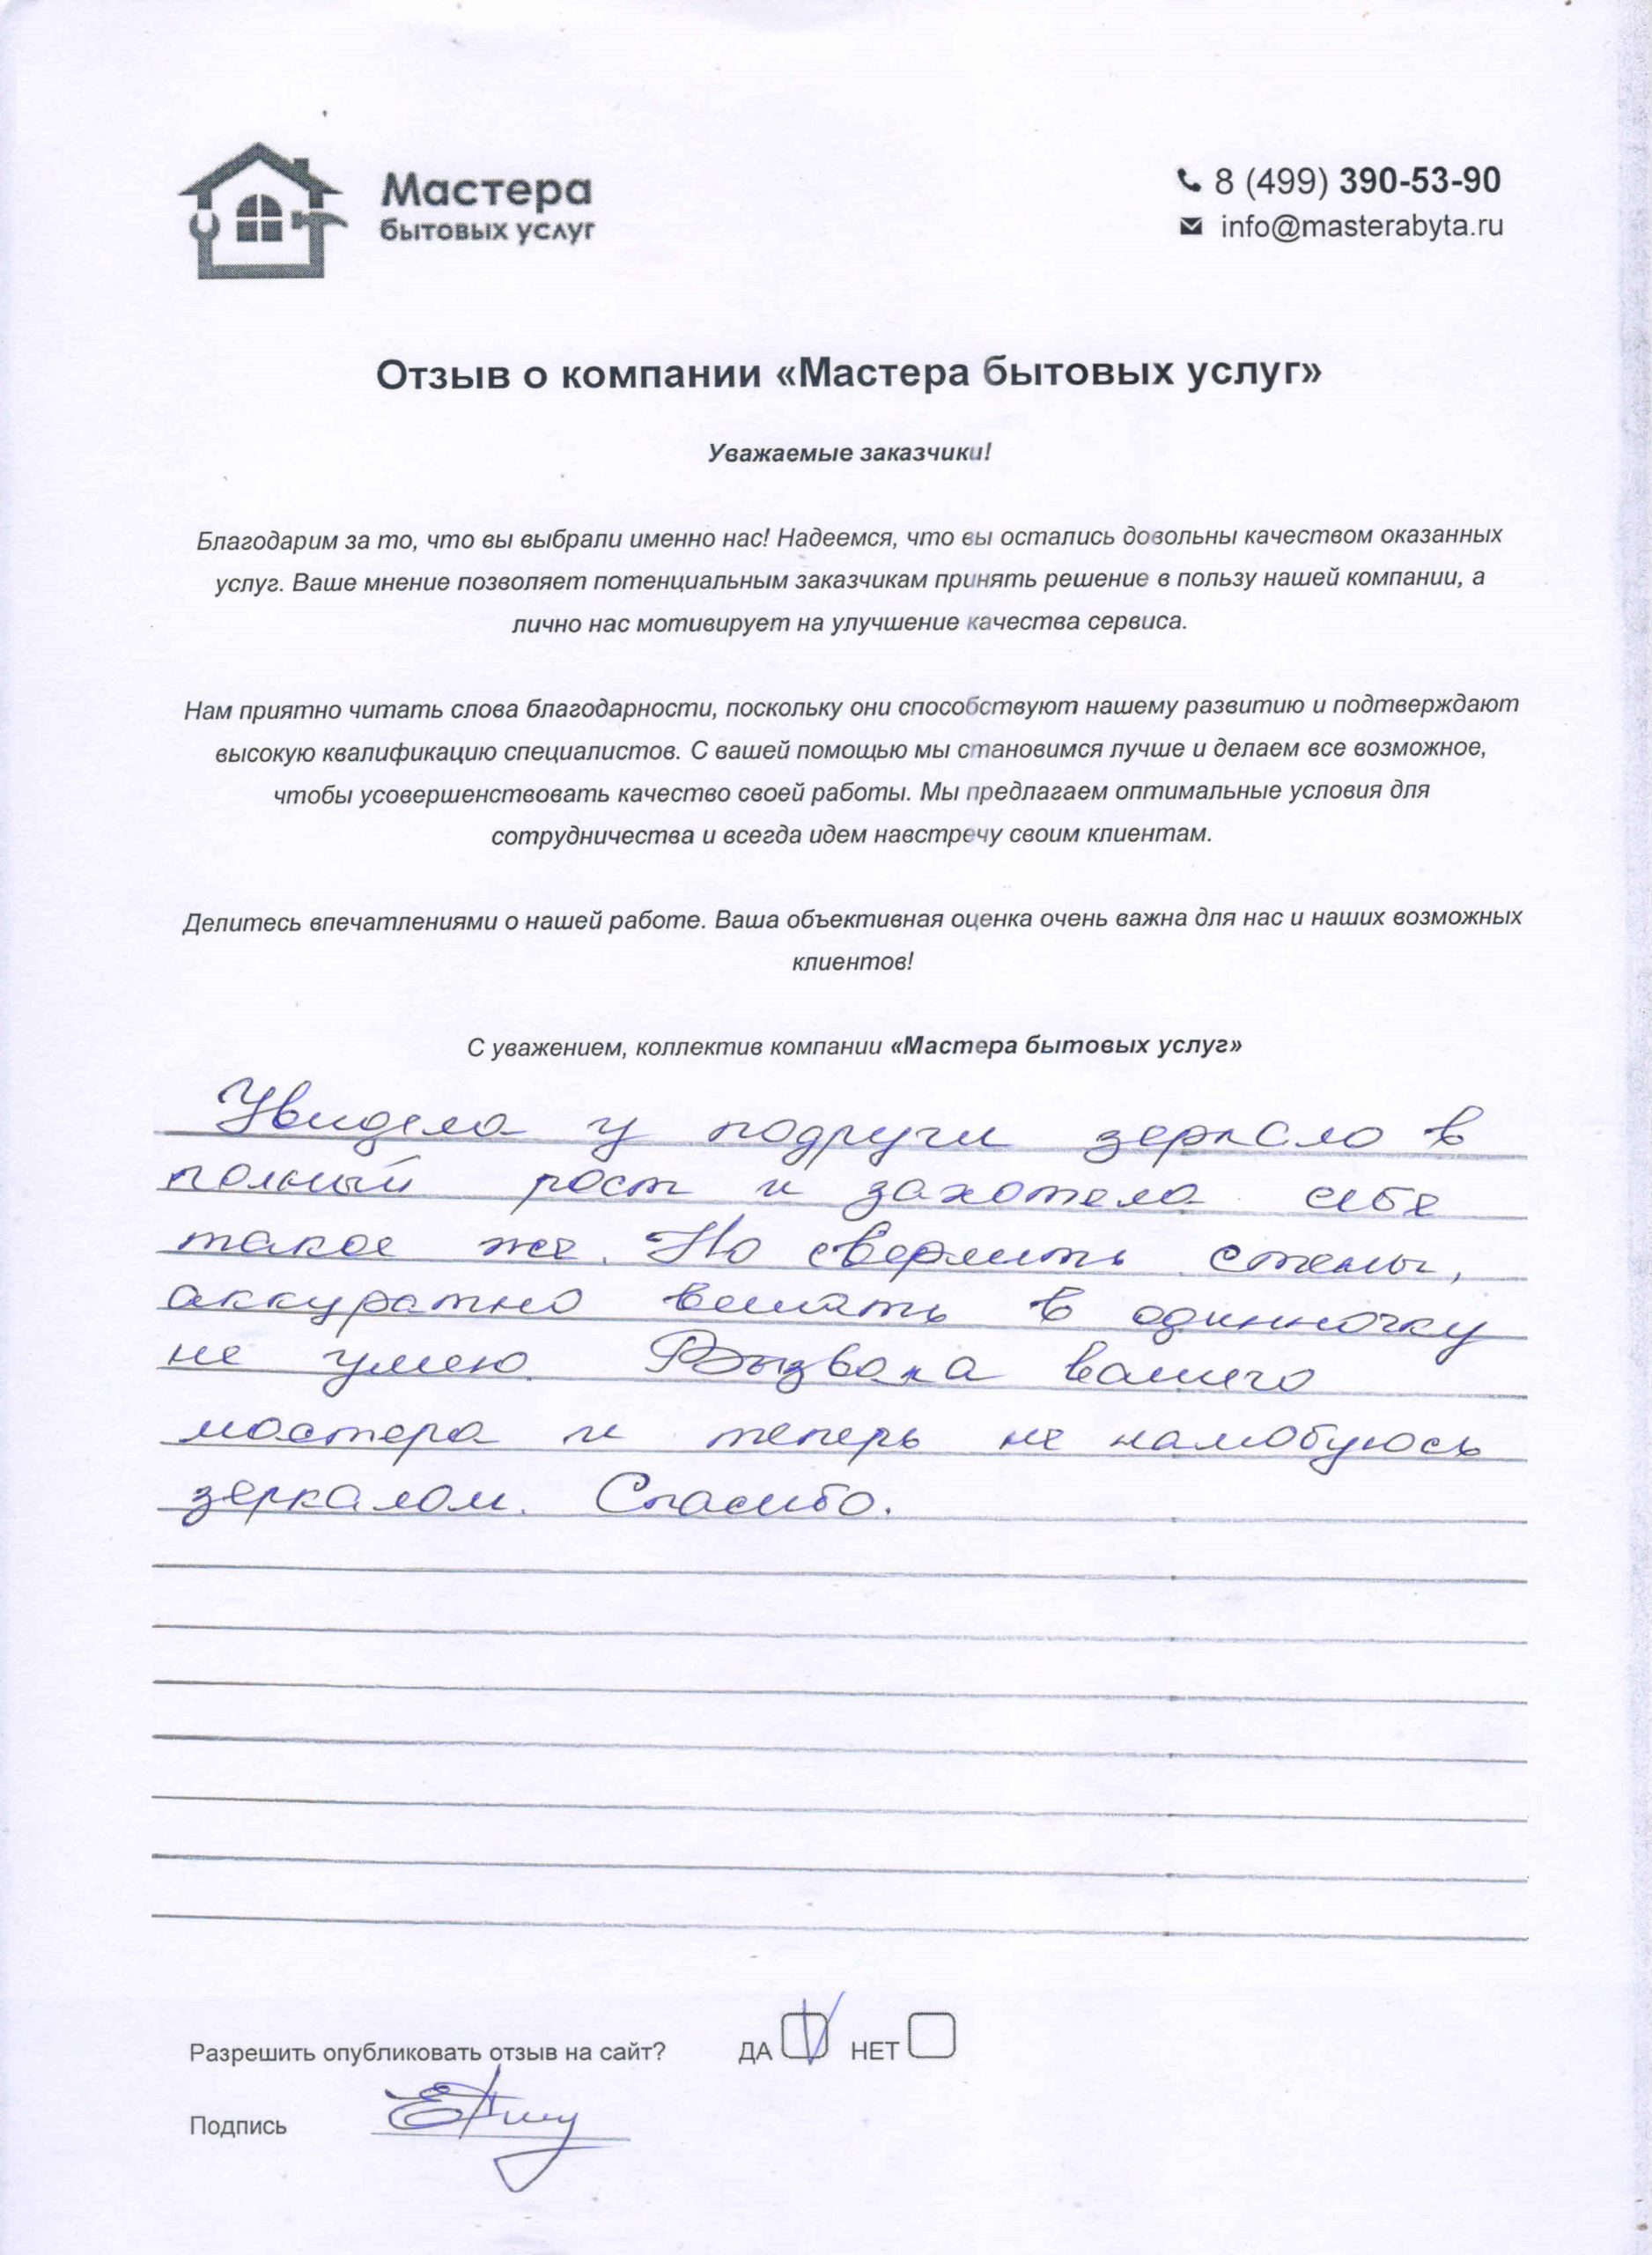 Мастера
бытовых услуг
8 (499) 390-53-90
info@masterabyta.ru
Отзыв о компании «Мастера бытовых услуг»
Уважаемые заказчики!
Благодарим за то, что вы выбрали именно нас! Надеемся, что вы остались довольны качеством оказанных
услуг. Ваше мнение позволяет потенциальным заказчикам принять решение в пользу нашей компании, а
лично нас мотивирует на улучшение качества сервиса.
Нам приятно читать слова благодарности, поскольку они способствуют нашему развитию и подтверждают
высокую квалификацию специалистов. С вашей помощью мы становимся лучше и делаем все возможное,
чтобы усовершенствовать качество своей работы. Мы предлагаем оптимальные условия для
сотрудничества и всегда идем навстречу своим клиентам.
Делитесь впечатлениями о нашей работе. Ваша объективная оценка очень важна для нас и наших возможных
клиентов!
С уважением, коллектив компании «Мастера бытовых услуг»
Увидела у подруги зеркало в
полный рост и захотела себе
такое же. Но сверлить стены,
аккуратно вешать в одинночку
не умею. Вызвала вашего
мастера и теперь не налюбуюсь
зеркалом. Спасибо.
Разрешить опубликовать отзыв на сайт? ДА НЕТ
Подпись